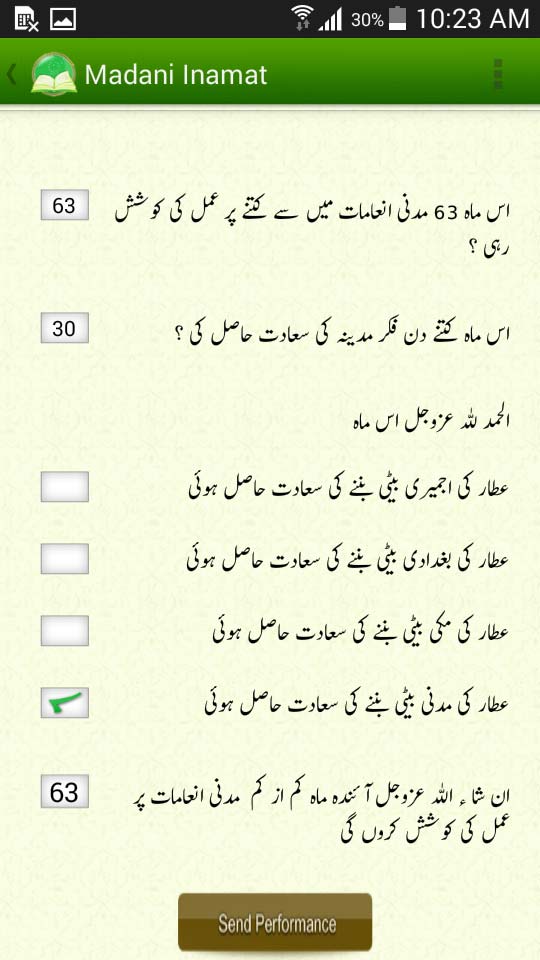 30% 10:23 AM
Madani Inamat
اس ماہ 63 مدنی انعامات میں سے کتنے پر عمل کی کوشش
رہی ؟
63
اس ماہ کتنے دن فکر مدینہ کی سعادت حاصل کی ؟
30
الحمد للہ عزوجل اس ماہ
عطار کی اجمیری بیٹی بننے کی سعادت حاصل ہوئی
عطار کی بغدادی بیٹی بننے کی سعادت حاصل ہوئی
عطار کی مکی بیٹی بننے کی سعادت حاصل ہوئی
عطار کی مدنی بیٹی بننے کی سعادت حاصل ہوئی
ان شاء اللہ عزوجل آئندہ ماہ کم از کم مدنی انعامات پر
عمل کی کوشش کروں گی
63
Send Performance